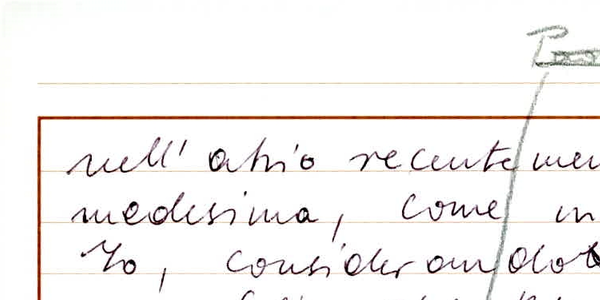 nell'atrio recentemen
medesima, come in
to, considerandol